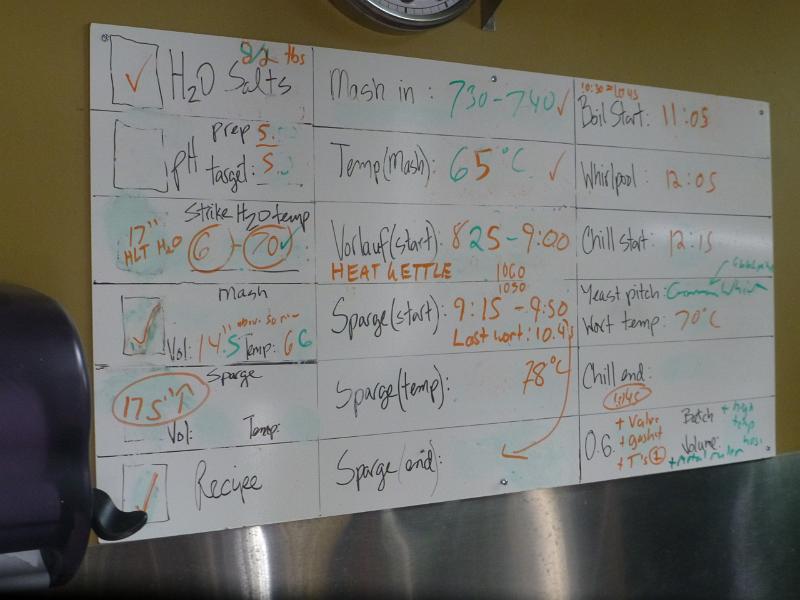 lbs
H2O Salts
prep 5.
pH target: 5.
Strike H2O temp
17"
HLT H2O
6 - 70
mash
Vol: 14.5 Temp: 66
Sparge
17.5"
Vol: Temp:
Recipe
Mash in: 730-740
Temp (Mash): 65°C
Vorlauf (start): 825-9:00
HEAT KETTLE 1060
1050
Sparge (start): 9:15 - 9:50
Last wort: 10.4
Sparge (temp): 78°C
Sparge (end):
10:30 = 1.045
Boil Start: 11:05
Whirlpool: 12:05
Chill start: 12:15
Yeast pitch:
Wort temp: 70°C
Chill end:
0.6
+ Valve
+ gasket
+ T's 1
Batch
Volume:
+ high
temp
hose
+ metal ruler